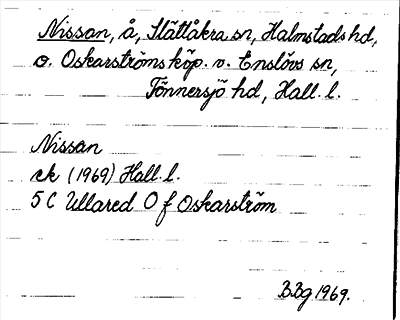 Nissan, å, Slättåkra sn, Halmstads hd,
o. Oskarströms köp. o. Enslövs sn,
Tönnersjö hd, Hall. l.
Nissan
ek (1969) Hall. l.
5 C Ullared O f Oskarström
BBg 1969.